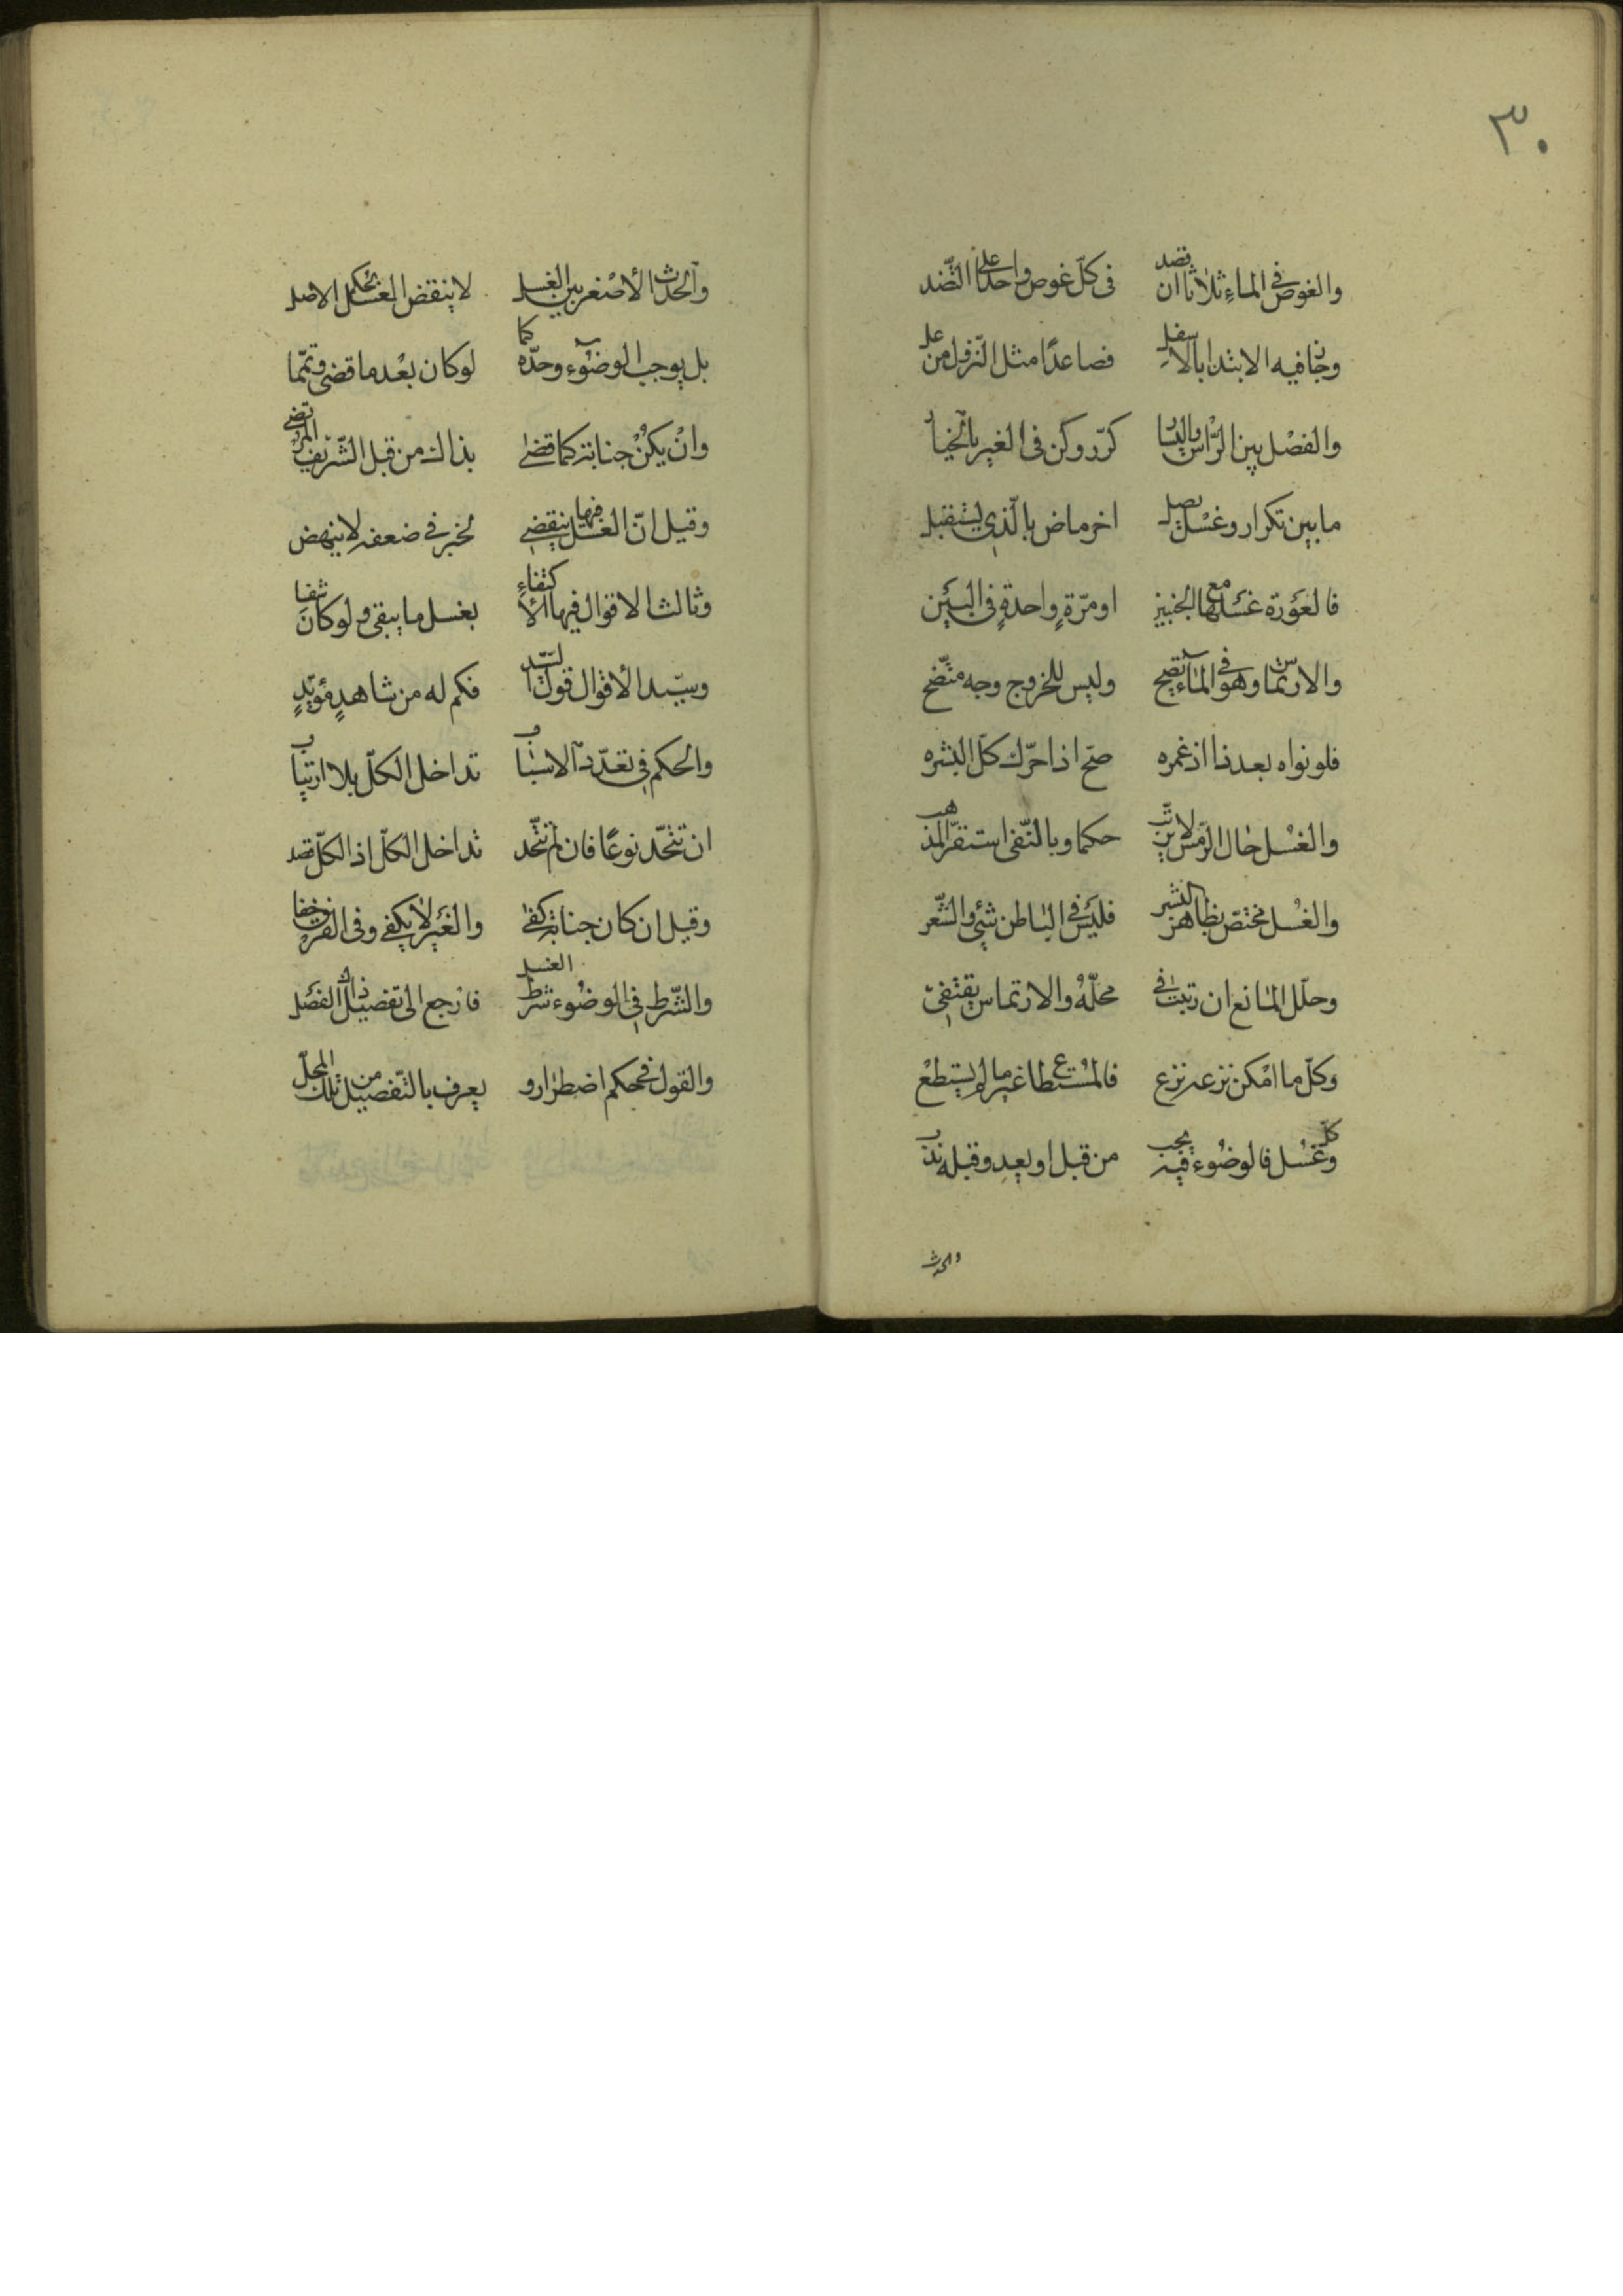 ٣٠
والغوص في الماء ثلاثا ان قصد في كلّ غوص واحدا على النّضد
وجاز فيه الابتدا بالاسفل فصاعدًا مثل النّزول من عل
والفصل بين الرّاس واليسار كرّر وكن في الغير بالخيار
ما بين تكرار وغسل يصل اخر ماض بالّذي يستقبل
فالعورة غسلها مع الجنبين او مرّةٍ واحدةٍ في البين
والارتماس وهو في الماء يصح وليس للخروج وجه متّضح
فلو نواه بعد ذا اذ غمره صحّ اذا حرّك كلّ البشره
والغسل حال الرّمس لا يرتّب حكما وبالنّفى استقرّ المذهب
والغسل مختصّ بظاهر البشر فليس في الباطن شيء والشّعر
وخلّل المانع ان رتبت في محلّه والارتماس يقتفى
وكلّ ما امكن نزعه نزع فالمستطاع غير ما لم يستطع
وكلّ غسل فالوضوء فيه يجب من قبل او بعد وقبله ندب
والحدث
والحدث الأصغر بين الغسل لا ينقض الغسل بحكم الاصل
بل يوجب الوضوء وحده كما لو كان بعد ما قضى وتمّما
وان يكن جنابة كما قضى بذاك من قبل الشّريف المرتضى
وقيل انّ الغسل فيها ينقضي لخبر في ضعفه لا ينهض
وثالث الاقوال فيها الاكتفاء بغسل ما يبقى ولو كان شفا
وسيّد الأقوال قول السّيّد فكم له من شاهدٍ مؤيّدٍ
والحكم في تعدّد الاسباب تداخل الكلّ بلا ارتياب
ان تتّحد نوعًا فان لم تتّحد تداخل الكلّ اذ الكلّ قصد
وقيل ان كان جنابة كفى والغير لا يكفي وفي الفرق خفا
والشّرط في الوضوء شرط الغسل فارجع الى تفصيل ذاك الفصل
والقول في حكم اضطرار و يعرف بالتّفصيل من تلك المحلّ